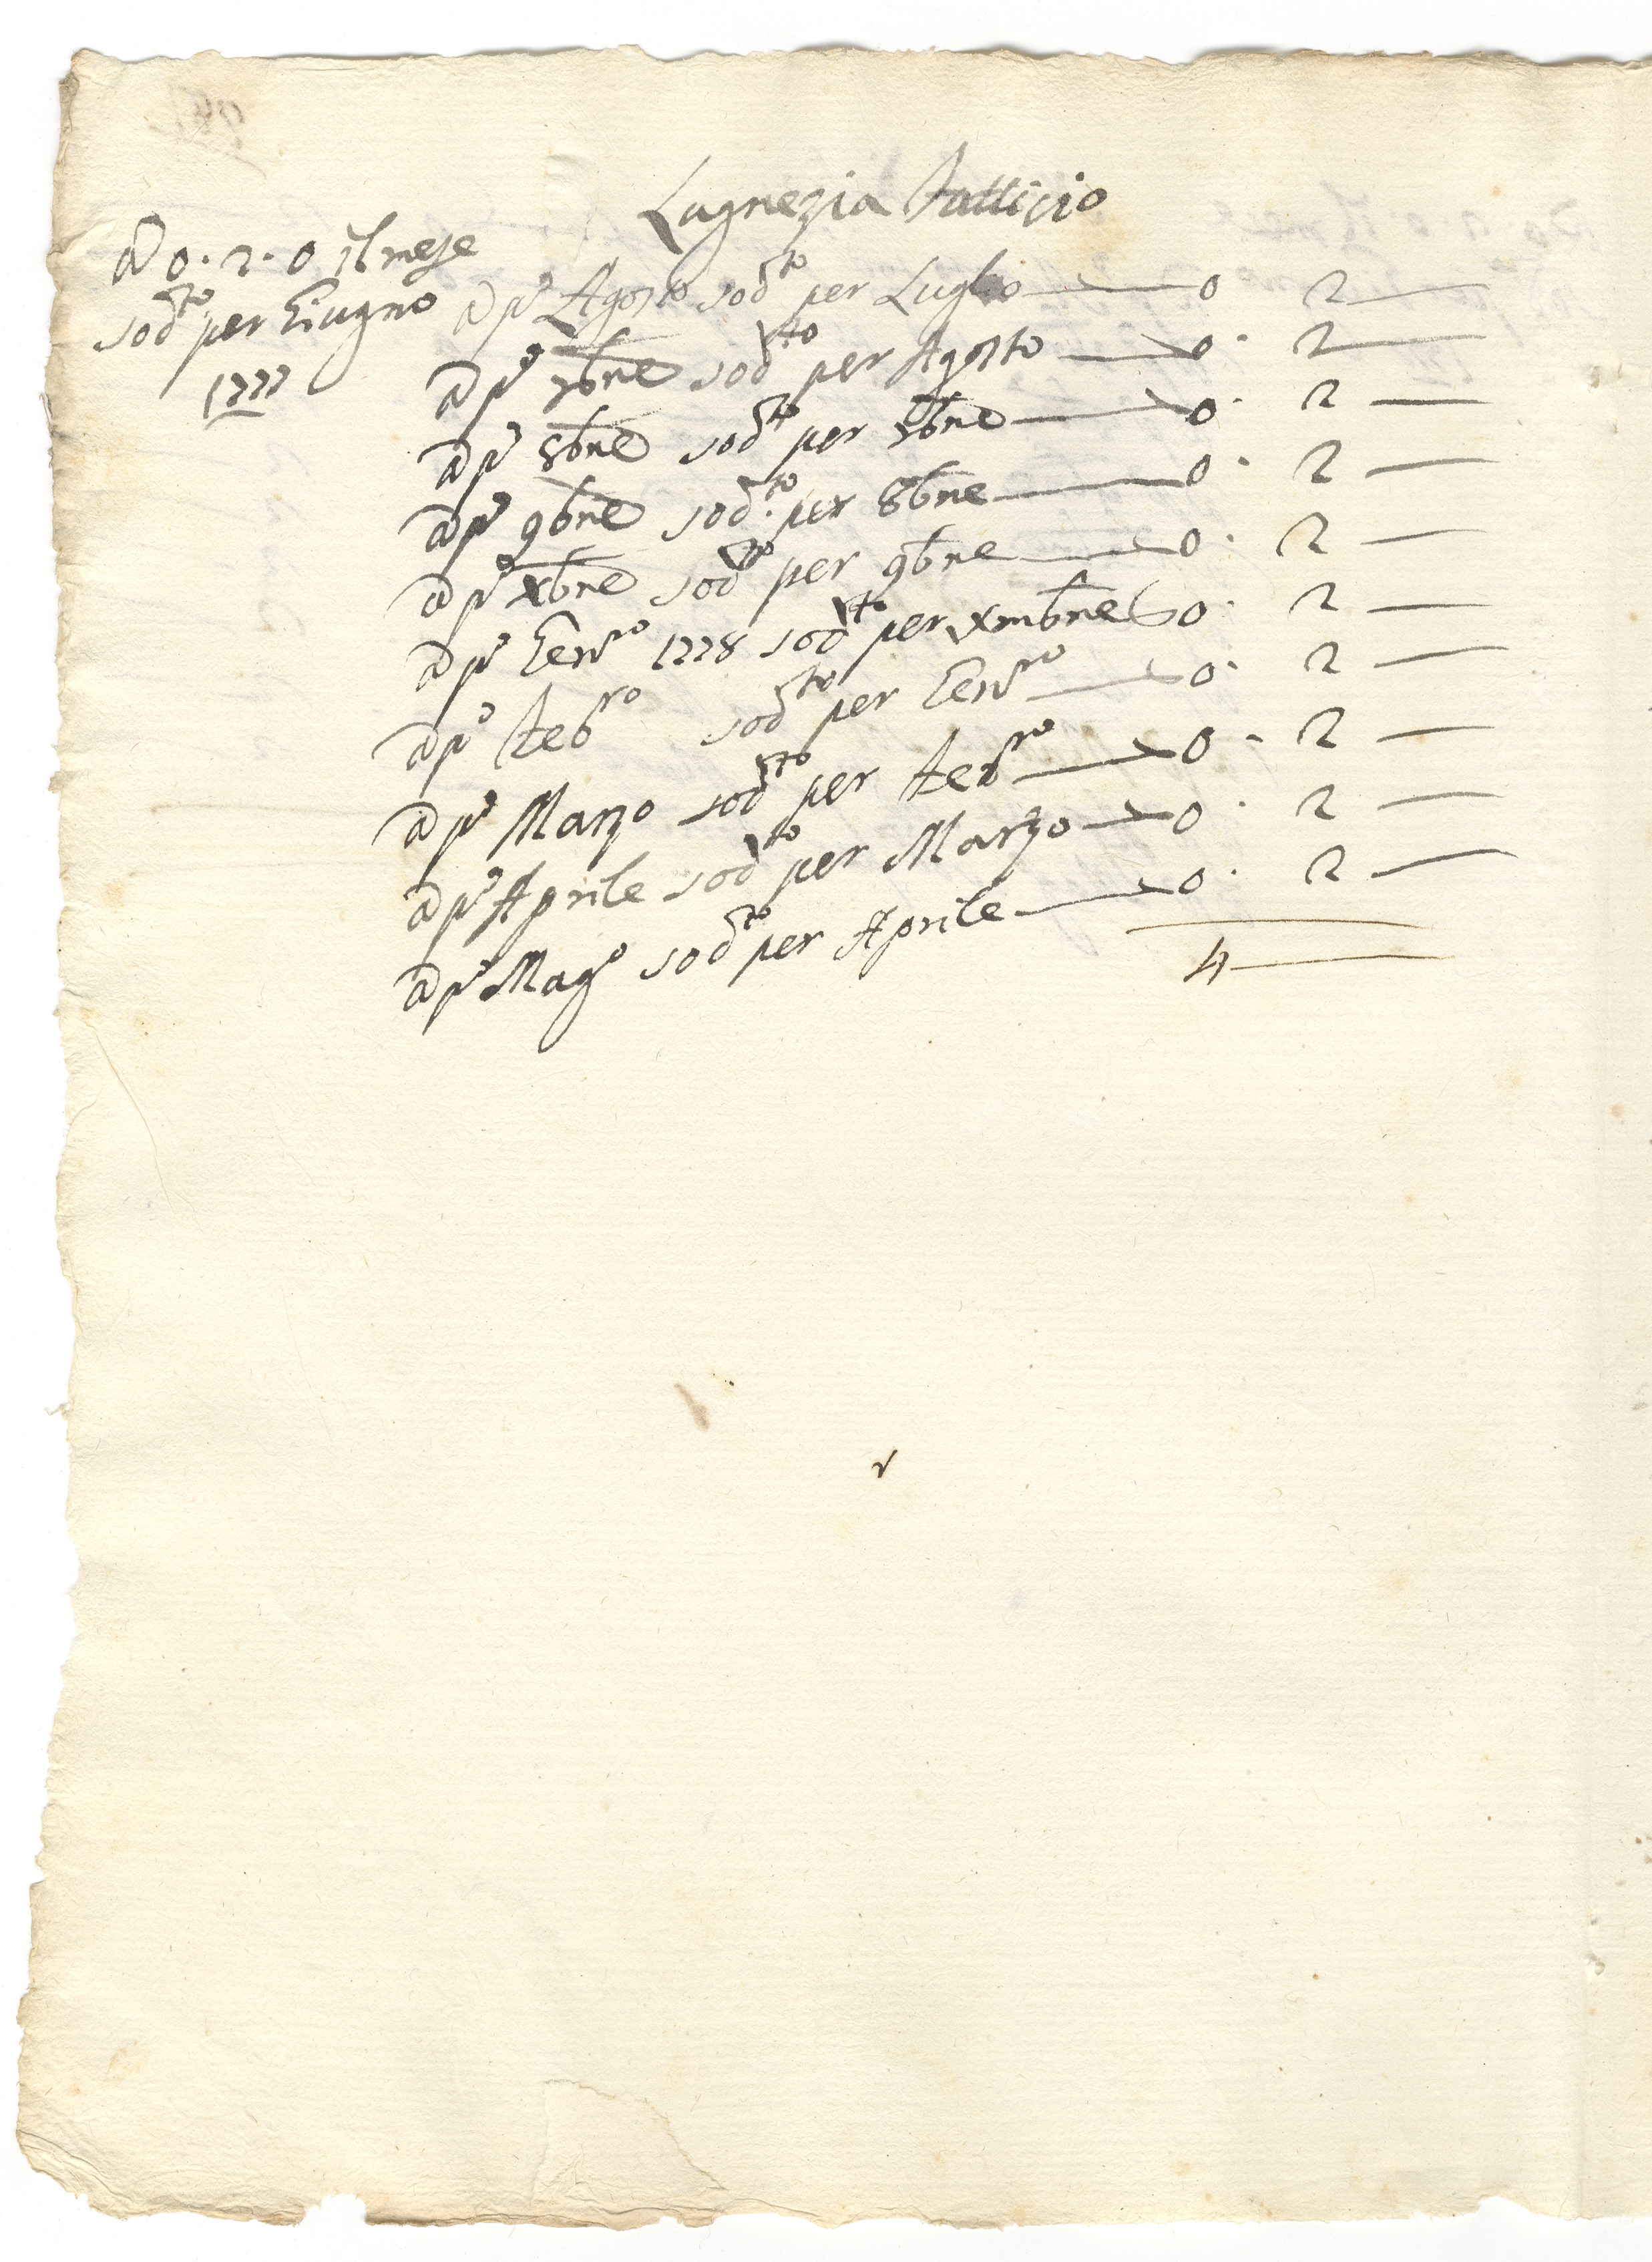 Lugrezia Fattisio
A 0. 2. 0 il mese
sod.to per Giugno
1777
A p.o Agosto sod.to per Luglio 0 2
A p.o 7bre sod.to per Agosto 0. 2
A p.o 8bre sod.to per 7bre 0. 2
A p.o 9bre sod.to per 8bre 0. 2
A p.o Xbre sod.to per 9bre 0. 2
A p.o Gen.ro 1778 sod.to per Xmbre 0. 2
A p.o Feb.ro sod.to per Gen.ro 0. 2
A p.o Marzo sod.to per Feb.ro 0. 2
A p.o Aprile sod.to per Marzo 0. 2
A p.o Mag.o sod.to per Aprile 0. 2
4